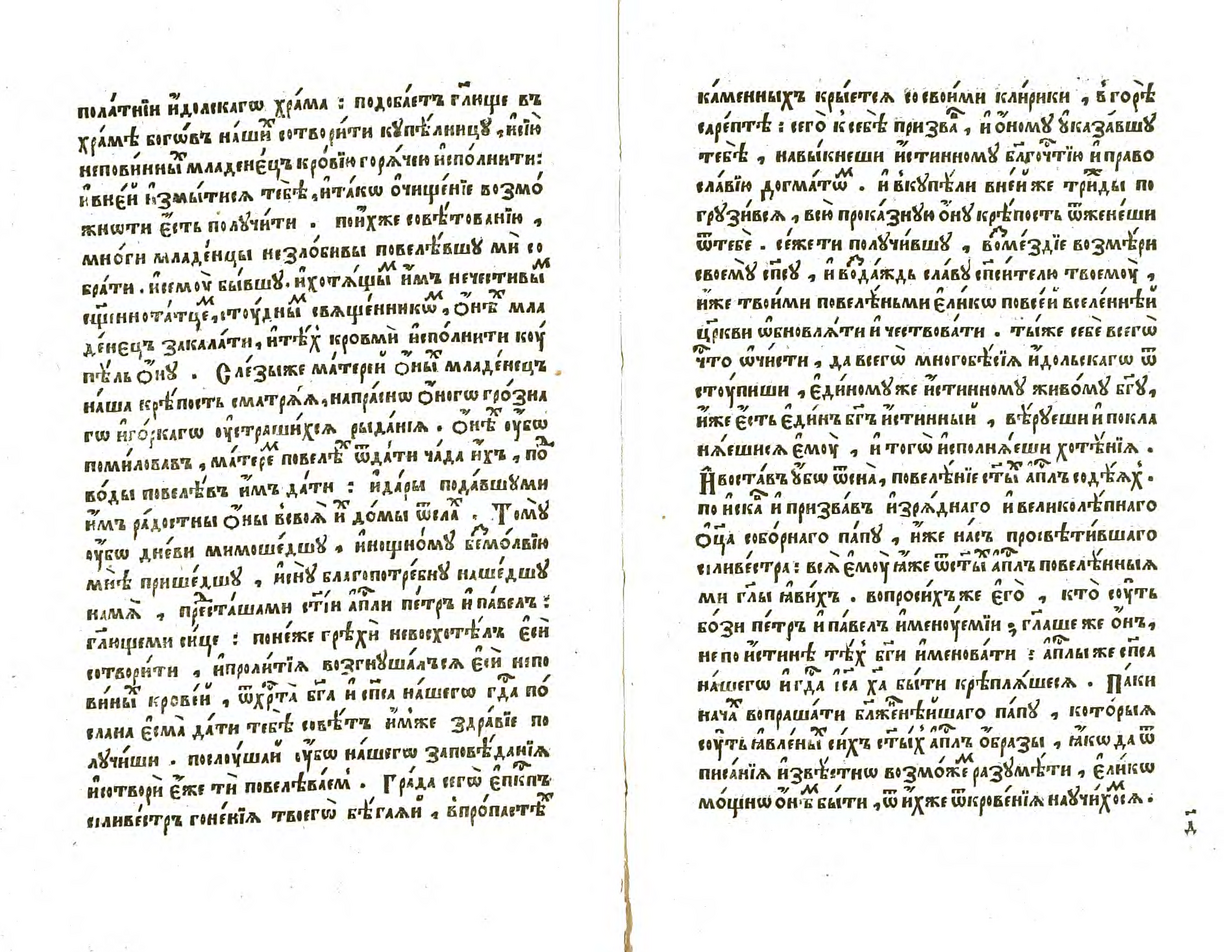 пола́тнїи и҆́дольскагѡ хра́ма : подоба́етъ гл҃юще въ
хра́мѣ богѡ́въ на́шиⷯ сотвори́ти купѣ́лницу , и҆сїю̀
непови́нныⷯ младене́цъ кро́вїю горѧ́чею и҆спо́лнити:
и҆вне́й и҆змы́тисѧ тебѣ̀ , и҆та́кѡ о҆чище́нїе возмо́
жнѡти є҆́сть получи́ти . пои҆́хже совѣ́тованїю ,
мно́ги младе́нцы незло́бивы повелѣ́вшꙋ мѝ со
бра́ти . и҆семꙋ̀ бы́вшꙋ . и҆хотѧ́щыⷨ и҆̀мъ нечести́выⷨ
сщ҃еннота́тце , стоу́дныⷨ свѧще́нникѡⷨ , о҆́нѣⷯ мла
де́нєцъ закала́ти , и҆тѣ́ⷯ кровмѝ и҆спо́лнити коу
пѣ́ль о҆́нꙋ . Сле́зыже ма́терей о҆́ныⷯ младе́нецъ
на́ша крѣ́пость сматрѧ́ѧ , напра́снѡ о҆́ногѡ гро́зна
гѡ и҆го́ркагѡ оу҆страши́хсѧ рыда́нїѧ . о҆́нѣⷯ оу҆́бѡ
поми́ловавъ , ма́тереⷨ повелѣ́ⷯ ѿда́ти ча́да и҆́хъ , поⷣ
во́ды повелѣ́въ и҆̀мъ да́ти : и҆да́ры пода́вшꙋми
и҆̀мъ ра́достны о҆́ны всвоѧ̀ и҆ⷯ до́мы ѿсла́ⷯ . Томꙋ̀
оу҆́бѡ дне́ви мимоше́дшꙋ , и҆но́щномꙋ беⷥмо́лвїю
мнѣ̀ прише́дшꙋ , и҆сн꙽ꙋ̀ благопотре́бнꙋ наше́дшꙋ
намѧ̀ , преⷣста́шами ст҃і́и а҆пⷭ҇ли пе́тръ и҆па́вєлъ :
гл҃ющеми си́це : поне́же грѣхѝ невосхотѣ́лъ є҆сѝ
сотвори́ти , и҆проли́тїѧ возгнꙋша́лъсѧ є҆сѝ непо
ви́нныⷯ крове́й , ѿхрⷭ҇та̀ бг҃а и҆ сп҃са на́шегѡ гдⷭ҇а по́
слана є҆сма̀ да́ти тебѣ̀ совѣ́тъ и҆́мже здра́вїе по
лꙋ́чиши . послоу́шай оу҆́бѡ на́шегѡ заповѣ́данїѧ
и҆сотворѝ є҆́же тѝ повелѣва́емⸯ . Гра́да сегѡ̀ є҆пⷭ҇кпъ
силиве́стръ гоне́нїѧ твоегѡ̀ бѣ́гаѧй , впро́пастеⷯ
ка́менныхъ кры́етсѧ сосвои́ми кли́рики , вгорѣ̀
саре́птѣ : сего̀ ксебѣ̀ призва́в , и҆ о҆́номꙋ оу҆каза́вшꙋ
тебѣ̀ , навы́кнеши и҆́стинномꙋ блгⷭ҇оче́тїю и҆право
сла́вїю до́гматѡⷡ . и҆ вкꙋпѣ́ли вне́йже три́жⷣы по
грꙋзи́всѧ , всю̀ прока́знꙋю о҆́нꙋ крѣ́пость ѿжене́ши
ѿтебѐ . се́жети полꙋчи́вшꙋ , вⷪ҇ме́здїе возмѣ́ри
своемꙋ̀ сп҃сꙋ , и҆ воⷥда́ждь сла́вꙋ сп҃си́телю твоемꙋ̀ ,
и҆́же твои́ми повелѣ́ньми є҆ли́кѡ повсе́й вселе́ннѣй
цр҃кви ѡ҆бновлѧ́ти и҆ че́ствовати . ты́же себѐ всегѡ̀
что̀ ѡ҆чи́сти , да всегѡ̀ многобѣ́сїѧ и҆́дольскагѡ ѿ
стꙋ́пиши , є҆ди́номꙋже и҆́стинномꙋ живо́мꙋ бг҃ꙋ ,
и҆́же є҆́сть є҆ди́нъ бг҃ъ и҆́стинный , вѣ́рꙋеши и҆ покла
нѧ́ешисѧ є҆мꙋ̀ , и҆ тогѡ̀ и҆сполнѧ́еши хотѣ́нїѧ .
И҆воста́въ оу҆́бѡ ѿсна̀ , повелѣ́нїе ст҃ы́ⷯ а҆пⷭ҇лъ содѣ́ѧⷯ .
по и҆ска́ⷯ и҆ призва́въ и҆зрѧ́днаго и҆ великолѣ́пнаго
о҆ц҃а собо́рнаго па́пꙋ , и҆́же на́съ просвѣти́вшаго
силиве́стра : всѧ̀ є҆мꙋ̀ ꙗ҆́же ѿст҃ы́ⷯ а҆пⷭ҇лъ повелѣ́нныѧ
ми гл҃ы ꙗ҆ви́хъ . вопроси́хъже є҆го̀ , кто̀ сꙋ́ть
бо́зи пе́тръ и҆ па́велъ и҆меноꙋ́емїи ; гл҃аше же о҆́нъ ,
не по и҆́стинѣ тѣ́ⷯ бг҃и и҆менова́ти : а҆пⷭ҇лы же сп҃са
на́шегѡ и҆ гдⷭ҇а і҆с҃а хⷭ҇а бы́ти крѣплѧ́шесѧ . Па́ки
нача́ⷯ вопраша́ти блже́ннѣйшаго па́пꙋ , кото́рыѧ
сꙋ́ть ꙗ҆вле́ны си́хъ ст҃ы́ⷯ а҆пⷭ҇лъ о҆́бразы , ꙗ҆́кѡ да ѿ
писа́нїѧ и҆звѣ́стнѡ возмо́жеⷨ разꙋмѣ́ти , є҆ли́кѡ
мо́щнѡ о҆́нѣⷨ бы́ти , ѿ ни́хже ѿкрове́нїѧ наꙋчи́хоⷨсѧ .
д҃